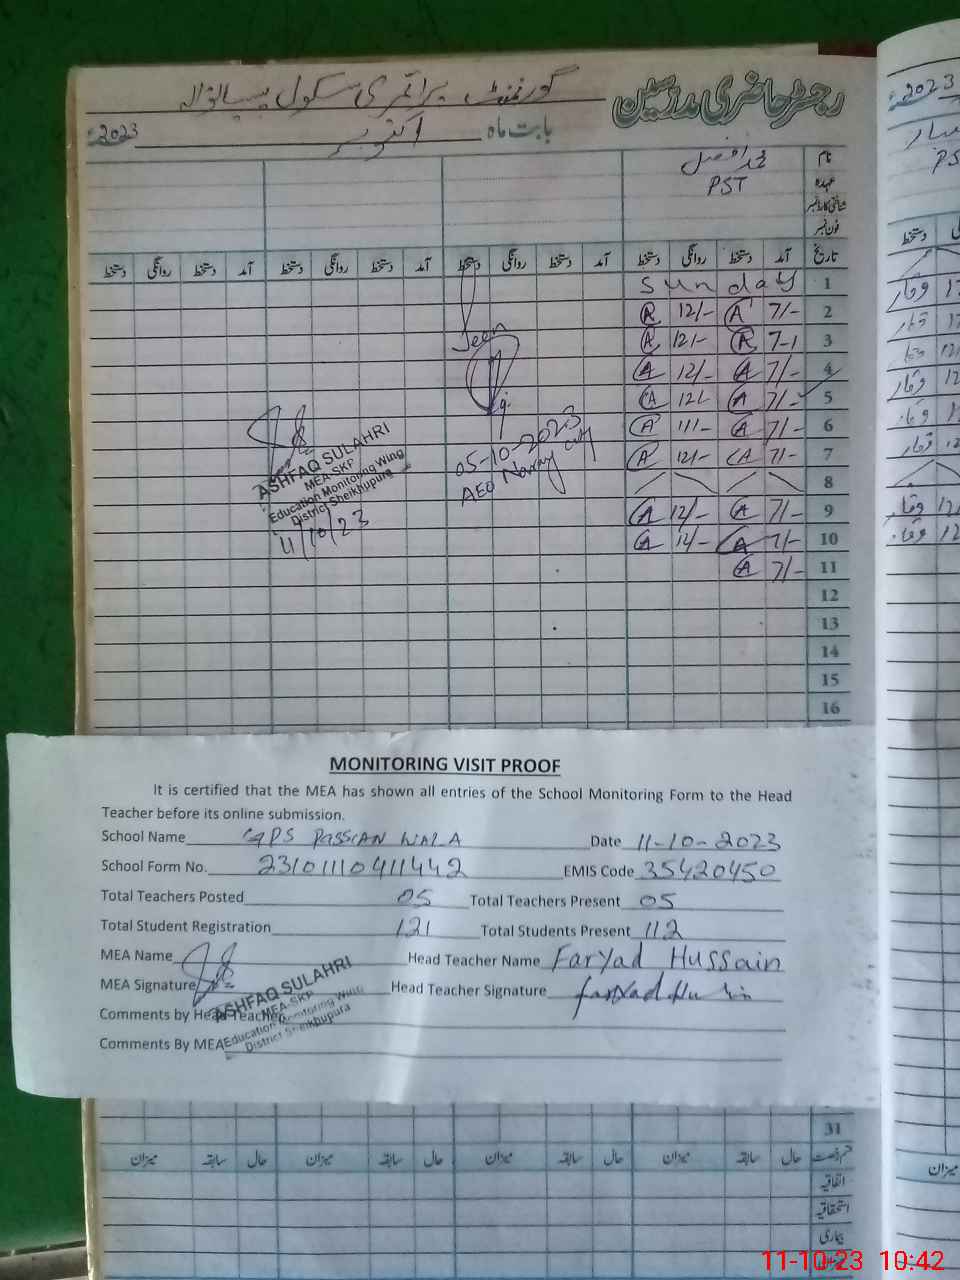 رجسٹر حاضری مدرسین
گورنمنٹ پرائمری سکول پسیانوالہ
بابت ماہ اکتوبر 2023ء
نام محمد افضل
عہدہ PST
شناختی کارڈ نمبر
فون نمبر
تاریخ آمد دستخط روانگی دستخط آمد دستخط روانگی دستخط آمد دستخط روانگی دستخط آمد دستخط روانگی دستخط
1 Sunday
2 7/- A 12/- A
3 7-1 A 12/- A
4 7/- A 12/- A
5 7/- A 12/- A
6 7/- A 11/- A
7 7/- A 12/- A
8
9 7/- A 12/- A
10 7/- A 12/- A
11 7/- A
12
13
14
15
16
Seen
05-10-2023
AEO
ASHFAQ SULAHRI
MEA-SKP
Education Monitoring Wing
District Sheikhupura
11/10/23
MONITORING VISIT PROOF
It is certified that the MEA has shown all entries of the School Monitoring Form to the Head
Teacher before its online submission.
School Name GPS PASSIAN WALA Date 11-10-2023
School Form No. 23101110411442 EMIS Code 35420450
Total Teachers Posted 05 Total Teachers Present 05
Total Student Registration 121 Total Students Present 112
MEA Name Head Teacher Name Faryad Hussain
MEA Signature Head Teacher Signature
Comments by Head Teacher
Comments By MEA
ASHFAQ SULAHRI
MEA-SKP
Education Monitoring Wing
District Sheikhupura
31
حال سابقہ میزان حال سابقہ میزان حال سابقہ میزان حال سابقہ میزان
اتفاقیہ
استحقاقیہ
بیماری
میزان
2023
11-10-23 10:42